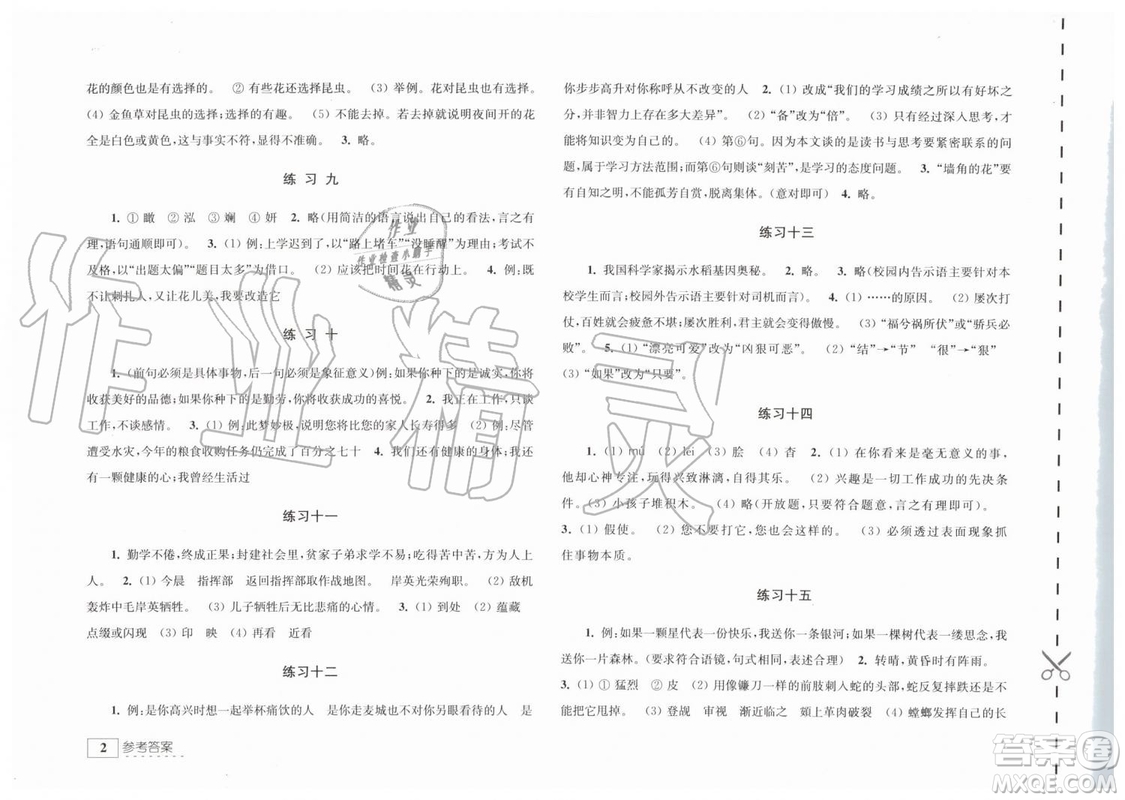 花的颜色也是有选择的。 ② 有些花还选择昆虫。 (3) 举例。花对昆虫是有选择的。
(4) 金鱼草对昆虫的选择;选择的有趣。 (5) 不能去掉。若去掉就说明夜间开的花
全是白色或黄色,这与事实不符,不准确。 3. 略。
练 习 九
1. ① 瞰 ② 泓 ③ 斓 ④ 妍 2. 略(用简洁的语言说出自己的看法,言之有
理,语句通顺即可)。 3. (1) 例:上学迟到了,以“路上堵车”“没睡醒”为理由;考试不
及格,以“出题太偏”“题目太多”为借口。 (2) 应该把时间花在行动上。 4. 例:既想
不让刺扎人,又让花儿美,我要改造它
练 习 十
1. (前句必须是具体事物,后一句必须是象征意义)例:如果你种下的是诚实,你将
收获美好的品德;如果你种下的勤劳,你将收获成功的喜悦。 2. 我正在工作,我只谈
工作,不谈感情。 3. (1) 例:此梦妙极,说明您将比您的家人长寿得多 (2) 例:尽管
遭受水灾,今年的粮食收购任务仍完成了百分之七十 4. 例:我们还有健康的身体;我还
有一颗健康的心;我曾经生活过
练习十一
1. 勤学不倦,终成正果;封建社会里,贫家子弟求学不易;吃得苦中苦,方为人上
人。 2. (1) 今晨 指挥部 返回指挥部取作战地图。 岸英光荣殉职。 (2) 敌机
轰炸中毛岸英牺牲。 (3) 儿子牺牲后无比悲痛的心情。 3. (1) 到处 (2) 蕴藏
点缀或闪现 (3) 印 映 (4) 再看 近看
练习十二
1. 例:是你高兴时想一起举杯痛饮的人 是你走麦城时对你另眼看待的人 是
2 参考答案
你步步高升对你称呼从不改变的人 2. (1) 改成“我们的学习成绩之所以有好坏之
分,并非智力上存在多大差异”。 (2) “备”改为“倍”。 (3) 只有经过深入思考,才
能把书本知识变为自己的。 (4) 第⑥句。因为本文谈的是读书与思考要紧密联系的问
题,属于学习方法范围;而第⑥句则谈“刻苦”,是学习的态度问题。 3. “墙角的花”要
有自知之明,不能孤芳自赏,脱离集体。(意对即可) 4. 略。
练习十三
1. 我国科学家揭示水稻基因奥秘。 2. 略。 3. 略(校园内告示语主要针对本
校学生而言;校园外告示语主要针对司机而言)。 4. (1) ……的原因。 (2) 屡次打
仗,百姓就会疲惫不堪;屡次胜利,君主就会变得傲慢。 (3) “福兮祸所伏”或“骄兵必
必败”。 5. (1) “漂亮可爱”改为“凶狠可恶”。 (2) “结”→“节” “很”→“狠”
(3) “如果”改为“只要”。
练习十四
1. (1) mú (2) lèi (3) 脍 (4) 杳 2. (1) 从人看来是毫无意义的事情,
他却心神专注,玩得兴致淋漓,自得其乐。 (2) 兴趣是一切工作成功的先决条
件。 (3) 小孩子堆积木。 (4) 略(开放题,要求符合题意,言之有理即可)。
3. (1) 假使。 (2) 您不要打它,您也会这样的。 (3) 必须透过表面现象抓
住事物本质。
练习十五
1. 例:如果一颗星代表一份快乐,我送你一条银河;如果一棵树代表一缕思念,我
送你一片森林。(要求符合语镜,句式相同即可) 2. 转晴,黄昏时有阵雨。
3. (1) ① 猛烈 ② 皮 (2) 用像镰刀一样的前肢刺入蛇的头部,蛇反复摔跌还是不
能把它甩掉。 (3) 登觇 审视 渐近临之 颏上革肉破裂 (4) 螳螂发挥自己的长
作业精灵
作业
作业检查小助手
精灵
答案圈
MXQE.COM